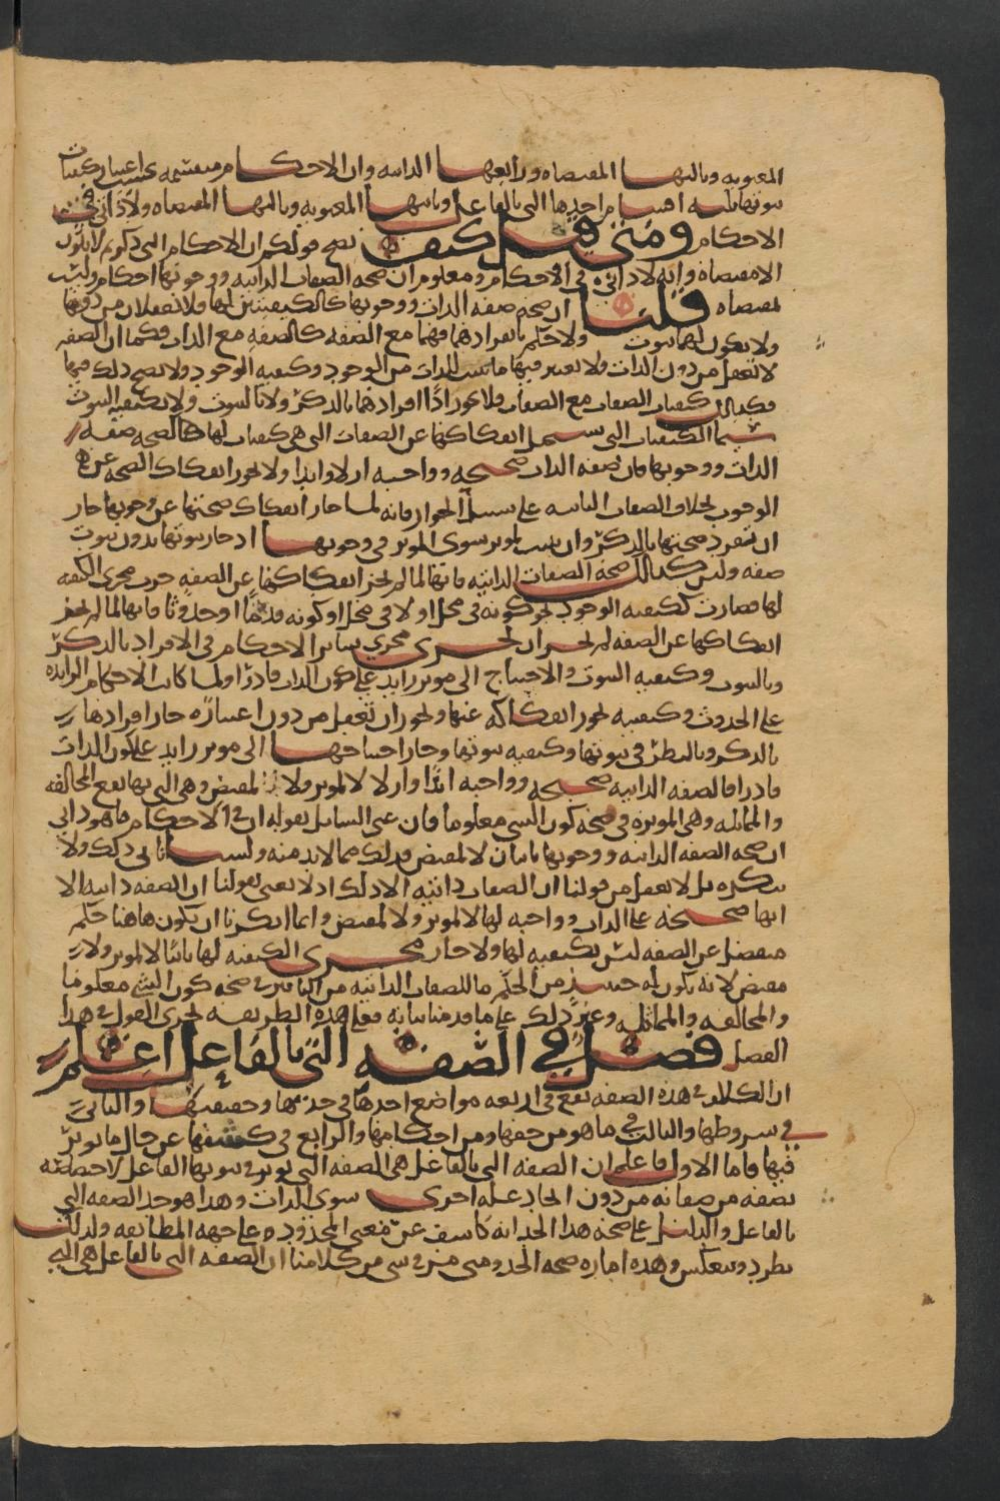 المعنويه وثالثها المقتضاه ورابعها الذاتيه وان الاحكام منقسمه بحسب اعتبار كيفيات
ثبوتها ثلثه اقسام احدها التي بالفاعل وثانيها المعنويه وثالثها المقتضاه ولا ذاتي في
الاحكام ومتى قيل كيف يصح قولكم ان الاحكام التي ذكرتم لا تكون
الا مقتضاه وانه لا ذاتي في الاحكام ومعلوم ان صحه الصفات الذاتيه ووجوبها احكام وليست
بمقتضاه قلنا ان صحه صفه الذات ووجوبها كالكيفيتين لها فلا تعقلان من دونها
ولا يكون لهما ثبوت ولا حكم بانفرادهما فهما مع الصفه كالصفه مع الذات فكما ان الصفه
لا تعقل من دون الذات ولا يعتبر فيها ما يثبت للذات من الوجود وكيفيه الوجود ولا يصح ذلك فيها
فكذلك كيفيات الصفات مع الصفات فلا يجوز اذا افرادهما بالذكر ولا بالثبوت ولا بكيفيه الثبوت
سيما الكيفيات التي يستحيل انفكاكها عن الصفات التي هي كيفيات لها كالصحه صفه
الذات ووجوبها فان صفه الذات صحيحه وواجبه ازلا وابدا ولا يجوز انفكاك الصحه عن
الوجوب بخلاف الصفات الثابته على سبيل الجواز فانه لما جاز انفكاك صحتها عن وجوبها جاز
ان تنفرد صحتها بالذكر وان يثبت لموثر سوى الموثر في وجوبها اذ جاز ثبوتها بدون ثبوت
صفه وليس كذلك صحه الصفات الذاتيه فانها لما لم يجز انفكاكها عن الصفه جرت مجرى الكيفيه
لها فصارت ككيفيه الوجود نحو كونه في محل او لا في محل او كونه قدما او حدوثا فانها لما لم يجز
انفكاكها عن الصفه لم يجز ان تجري مجرى سائر الاحكام في الافراد بالذكر
وبالثبوت وكيفيه الثبوت والاحتياج الى موثر زايد على كون الذات قادرا ولما كانت الاحكام الزايده
على الحدوث وكيفيه يجوز انفكاكه عنها ويجوز ان تعقل من دون اعتباره جاز افرادها
بالذكر وبالنظر في ثبوتها وكيفيه ثبوتها وجاز احتياجها الى موثر زايد على كون الذات
قادرا فالصفه الذاتيه صحيحه وواجبه ابدا وازلا لا لموثر ولا لمقتض وهي التي بها تقع المخالفه
والمماثله وهي الموثره في صحه كون الشي معلوما فان عنى السائل بقوله ان في الاحكام ما هو ذاتي
ان صحه الصفه الذاتيه ووجوبها ثابتان لا لمقتض فذلك مما لا بد منه ولسنا نابى ذلك ولا
ننكره بل لا نعقل من قولنا ان الصفات ذاتيه الا ذلك اذ لا نعني بقولنا ان الصفه ذاتيه الا
انها صحيحه على الذات وواجبه لها لا لموثر ولا لمقتض وانما انكرنا ان يكون هاهنا حكم
منفصل عن الصفه ليس بكيفيه لها ولا جار مجرى الكيفيه لها ثابتا لا لموثر ولا
مقتض لانه يكون له حينئذ من الحكم ما للصفات الذاتيه من التاثير في صحه كون الشي معلوما
والمخالفه والمماثله وغير ذلك على ما قدمنا بيانه فعلى هذه الطريقه يجري القول في هذا
الفصل فصل في الصفه التي بالفاعل اعلم
ان الكلام في هذه الصفه يقع في اربعه مواضع احدها في حدها وحقيقتها والثاني
في شروطها والثالث في ما هو من حقها ومن احكامها والرابع في كشفها عن حال ما يوثر
فيها فاما الاول فاعلم ان الصفه التي بالفاعل هي الصفه التي يوثر في ثبوتها الفاعل لاختصاصه
بصفه من صفاته من دون ايجاد علـه اخرى سوى الذات وهذا هو حد الصفه التي
بالفاعل والدليل على صحه هذا الحد انه كاشف عن معنى المحدود على جهه المطابقه ولذلك
يطرد وينعكس وهذه اماره صحه الحد ومتى مر في شي من كلامنا ان الصفه التي بالفاعل هي التي